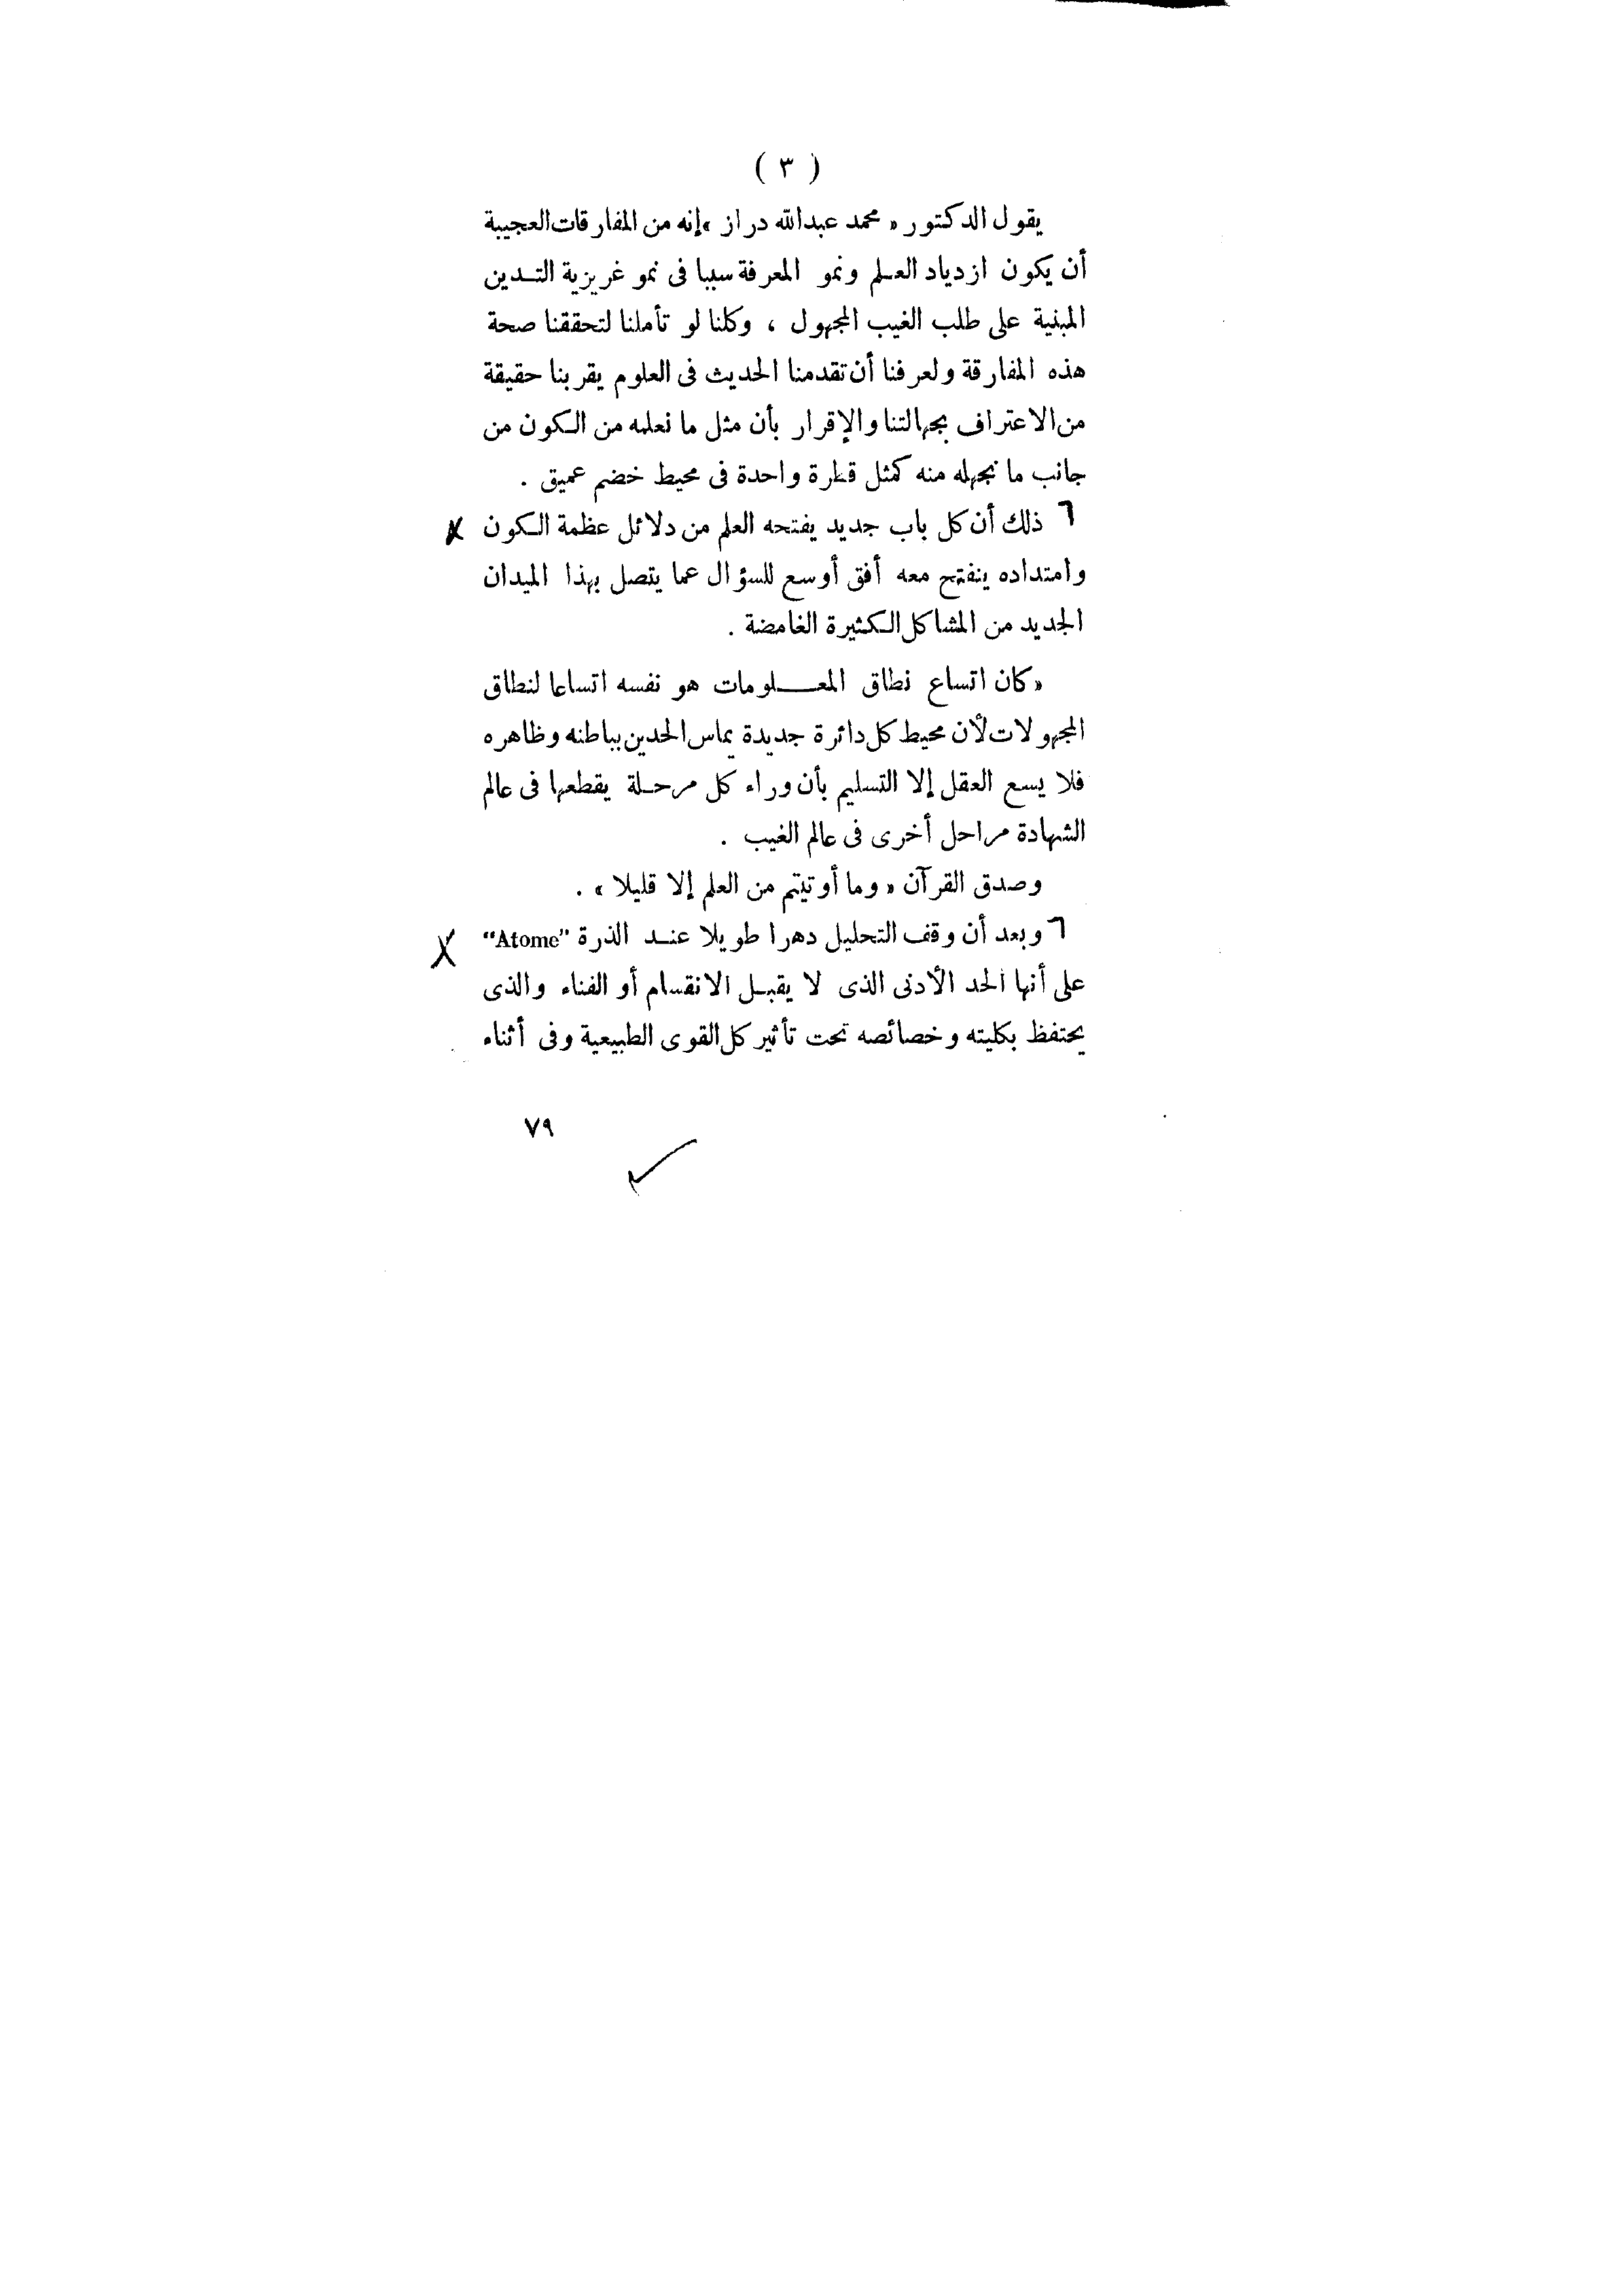 ( ٣ )
يقول الدكتور « محمد عبدالله دراز » إنه من المفارقات العجيبة
أن يكون ازدياد العلم ونمو المعرفة سببا فى نمو غريزية التدين
المبنية على طلب الغيب المجهول ، وكلنا لو تأملنا لتحققنا صحة
هذه المفارقة ولعرفنا أن تقدمنا الحديث فى العلوم يقربنا حقيقة
من الاعتراف بجهالتنا والإقرار بأن مثل ما نعلمه من الكون من
جانب ما نجهله منه كمثل قطرة واحدة فى محيط خضم عميق .
ذلك أن كل باب جديد يفتحه العلم من دلائل عظمة الكون
وامتداده ينفتح معه أفق أوسع للسؤال عما يتصل بهذا الميدان
الجديد من المشاكل الكثيرة الغامضة .
« كان اتساع نطاق المعلومات هو نفسه اتساعا لنطاق
المجهولات لأن محيط كل دائرة جديدة يماس الحدين بباطنه وظاهره
فلا يسع العقل إلا التسليم بأن وراء كل مرحلة يقطعها فى عالم
الشهادة مراحل أخرى فى عالم الغيب .
وصدق القرآن « وما أوتيتم من العلم إلا قليلا » .
وبعد أن وقف التحليل دهرا طويلا عند الذرة "Atome"
على أنها الحد الأدنى الذى لا يقبل الانقسام أو الفناء والذى
يحتفظ بكليته وخصائصه تحت تأثير كل القوى الطبيعية وفى أثناء
٧٩